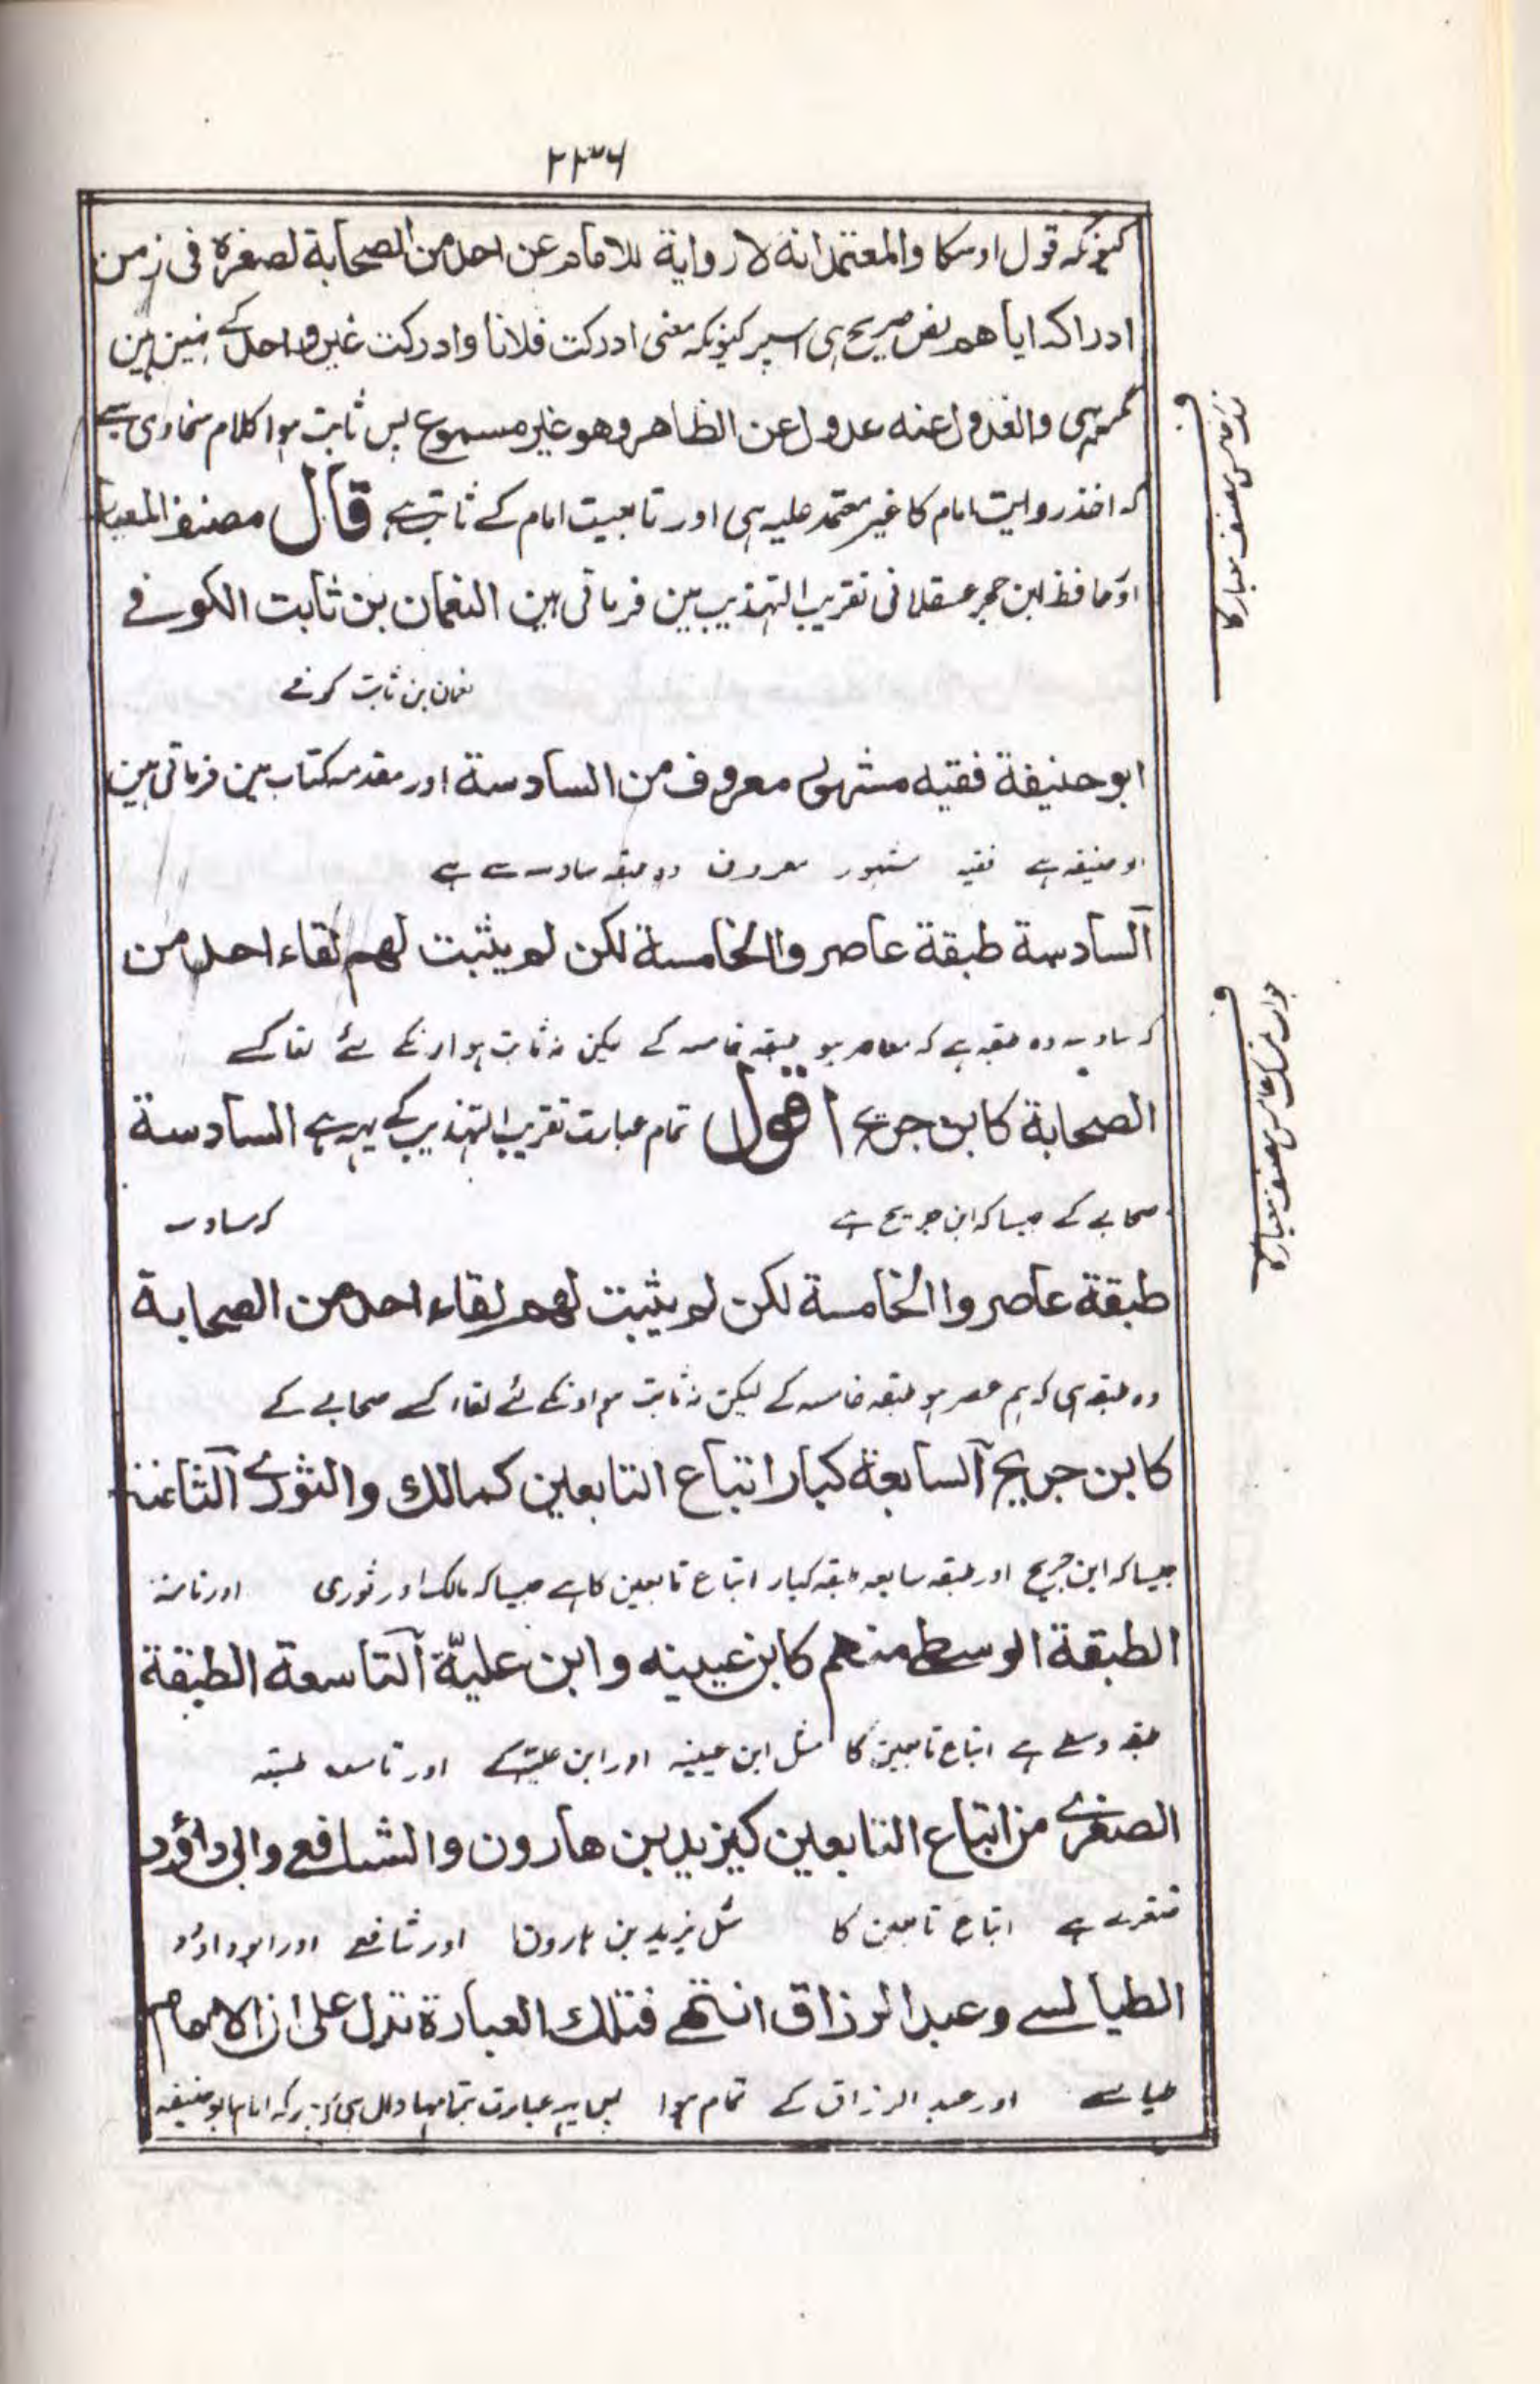 ۲۳۶
کیونکہ قول اوسکا والمعتمد انہ لا روایة للامام عن احد من الصحابة لصغرہ فی زمن
ادراکہ ایاھم نص صریح ہی اسپر کیونکہ معنی ادرکت فلانا وادرکت غیر واحد کے نہین ہین
مگر یہی والعدول عنہ عدول عن الظاھر وھو غیر مسموع پس ثابت ہوا کلام سخاوی سے
کہ اخذ روایت امام کا غیر معتمد علیہ ہی اور تابعیت امام کے ثابت ہے قال مصنف المعیار
اور حافظ ابن حجر عسقلانی تقریب التہذیب مین فرماتی ہین النعمان بن ثابت الکوفے
نعمان بن ثابت کوفے
ابو حنیفة فقیہ مشہور معروف من السادسة اور مقدمہ کتاب مین فرماتی ہین
ابو حنیفہ ہے فقیہ مشہور معروف وہ طبقہ سادسہ سے ہے
السادسة طبقة عاصروا الخامسة لکن لم یثبت لھم لقاء احد من
کہ سادسہ وہ طبقہ ہے کہ معاصر ہو طبقہ خامسہ کے لیکن نہ ثابت ہو اونکے لئے لقا کسے
الصحابة کابن جریج اقول تمام عبارت تقریب التہذیب کے یہہ ہے السادسة
صحابے کے جیسا کہ ابن جریج ہے کہ سادسہ
طبقة عاصروا الخامسة لکن لم یثبت لھم لقاء احد من الصحابة
وہ طبقہ ہی کہ ہم عصر ہو طبقہ خامسہ کے لیکن نہ ثابت ہو اونکے لئے لقاء کسے صحابے کے
کابن جریج السابعة کبار اتباع التابعین کمالك والثوری الثامنة
جیسا کہ ابن جریج اور طبقہ سابعہ طبقہ کبار اتباع تابعین کا ہے جیسا کہ مالک اور ثوری اور ثامنہ
الطبقة الوسطی منھم کابن عیینہ وابن علیّة التاسعة الطبقة
طبقہ وسطے ہے اتباع تابعین کا مثل ابن عیینہ اور ابن علیّہ کے اور تاسعہ طبقہ
الصغرے من اتباع التابعین کیزید بن ھارون والشافعے وابی داؤد
صغرے ہے اتباع تابعین کا مثل یزید بن ہارون اور شافعے اور ابو داؤد
الطیالسے وعبد الرزاق انتھے فتلك العبارة تدل علی ان الامام
طیالسے اور عبد الرزاق کے تمام ہوا پس یہہ عبارت بتمامہا دال ہی اوپر کہ امام ابو حنیفہ